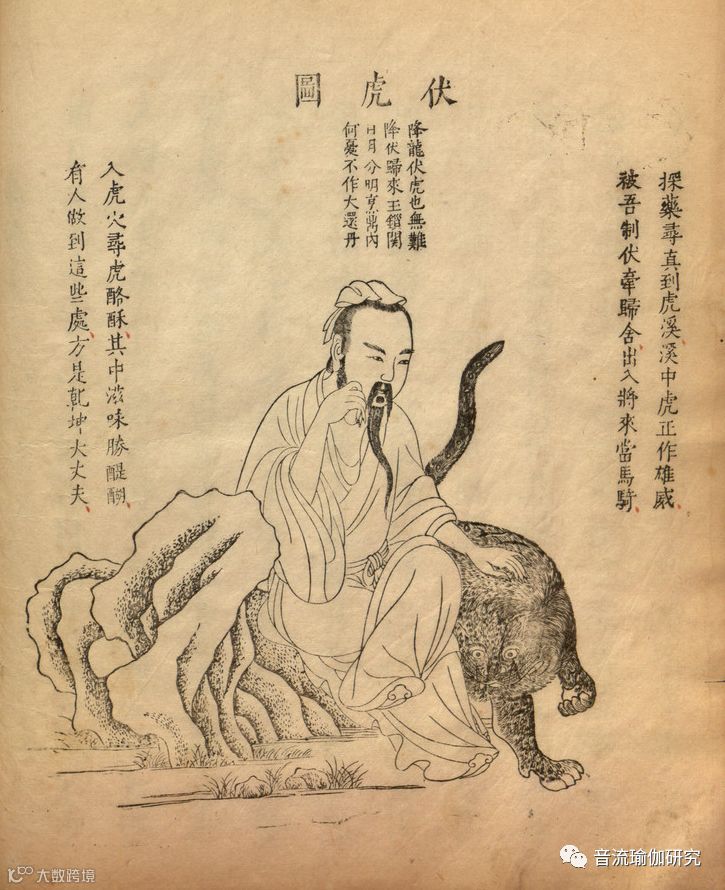 伏虎圖
探藥尋真到虎溪溪中虎正作雄威
被吾制伏牽歸舍出入將來當馬騎
降龍伏虎也無難
降伏歸來王鎖関
日月分明烹鼎内
何憂不作大還丹
入虎穴尋虎酪酥其中滋味勝醍醐
有人做到這些處方是乾坤大丈夫
音流瑜伽研究
大数跨境